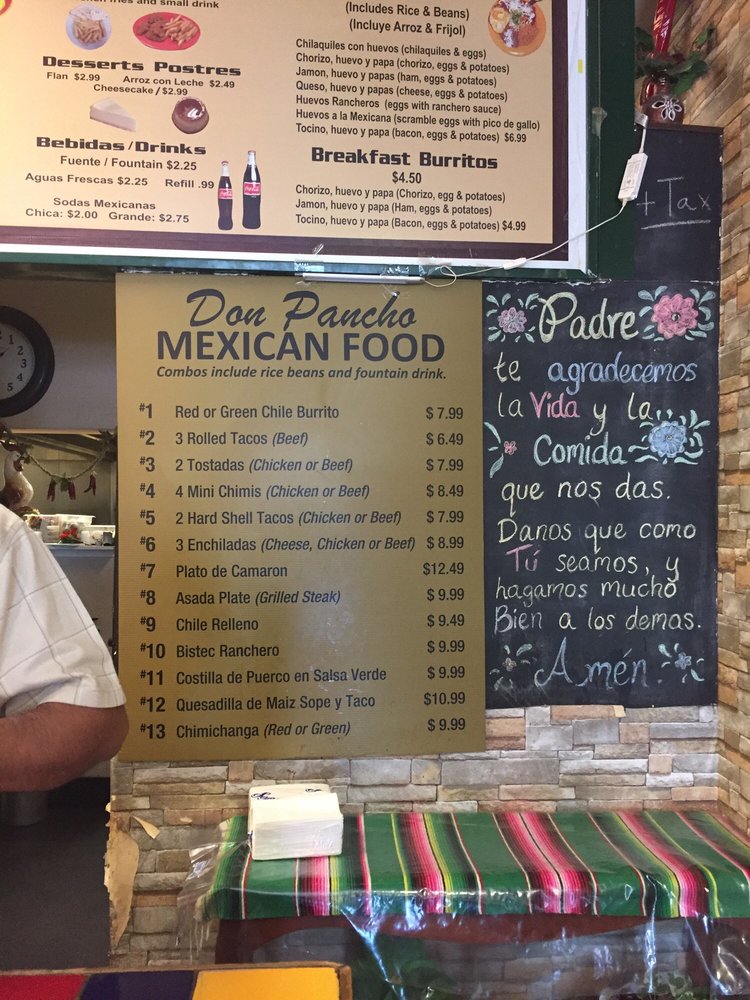 fries and small drink
Desserts Postres
Flan $2.99 Arroz con Leche $2.49
Cheesecake / $2.99
Bebidas/Drinks
Fuente / Fountain $2.25
Aguas Frescas $2.25 Refill .99
Sodas Mexicanas
Chica: $2.00 Grande: $2.75
(Includes Rice & Beans)
(Incluye Arroz & Frijol)
Chilaquiles con huevos (chilaquiles & eggs)
Chorizo, huevo y papa (chorizo, eggs & potatoes)
Jamon, huevo y papas (ham, eggs & potatoes)
Queso, huevo y papas (cheese, eggs & potatoes)
Huevos Rancheros (eggs with ranchero sauce)
Huevos a la Mexicana (scramble eggs with pico de gallo)
Tocino, huevo y papa (bacon, eggs & potatoes) $6.99
Breakfast Burritos
$4.50
Chorizo, huevo y papa (Chorizo, egg & potatoes)
Jamon, huevo y papa (Ham, eggs & potatoes)
Tocino, huevo y papa (Bacon, eggs & potatoes) $4.99
+ Tax
Don Pancho
MEXICAN FOOD
Combos include rice beans and fountain drink.
#1 Red or Green Chile Burrito $7.99
#2 3 Rolled Tacos (Beef) $6.49
#3 2 Tostadas (Chicken or Beef) $7.99
#4 4 Mini Chimis (Chicken or Beef) $8.49
#5 2 Hard Shell Tacos (Chicken or Beef) $7.99
#6 3 Enchiladas (Cheese, Chicken or Beef) $8.99
#7 Plato de Camaron $12.49
#8 Asada Plate (Grilled Steak) $9.99
#9 Chile Relleno $9.49
#10 Bistec Ranchero $9.99
#11 Costilla de Puerco en Salsa Verde $9.99
#12 Quesadilla de Maiz Sope y Taco $10.99
#13 Chimichanga (Red or Green) $9.99
Padre
te agradecemos
la Vida y la
Comida
que nos das.
Danos que como
Tú seamos, y
hagamos mucho
Bien a los demas.
Amén.